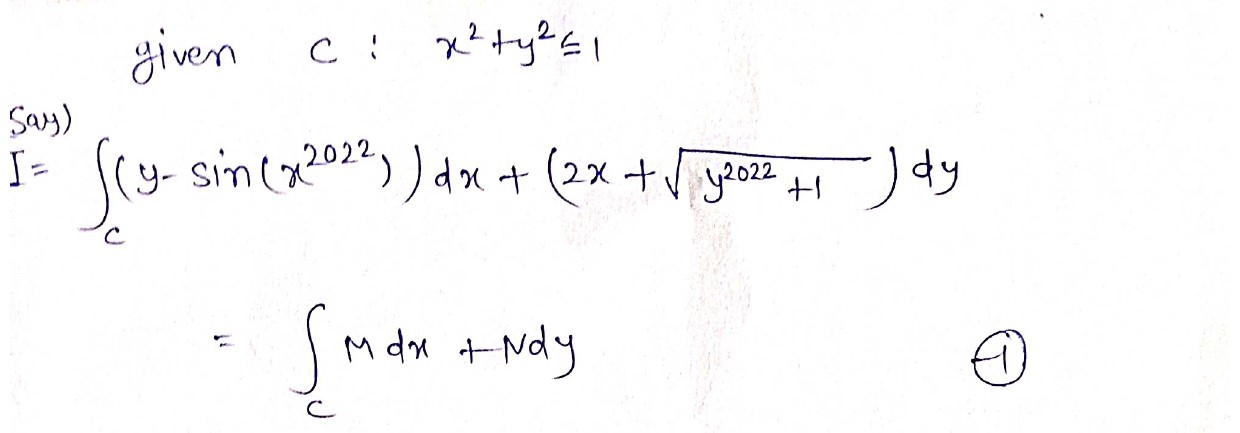 given C : x² + y² ≤ 1
Say)
I = ∫_C (y - sin(x²⁰²²)) dx + (2x + √(y²⁰²² + 1)) dy
= ∫_C M dx + N dy ①